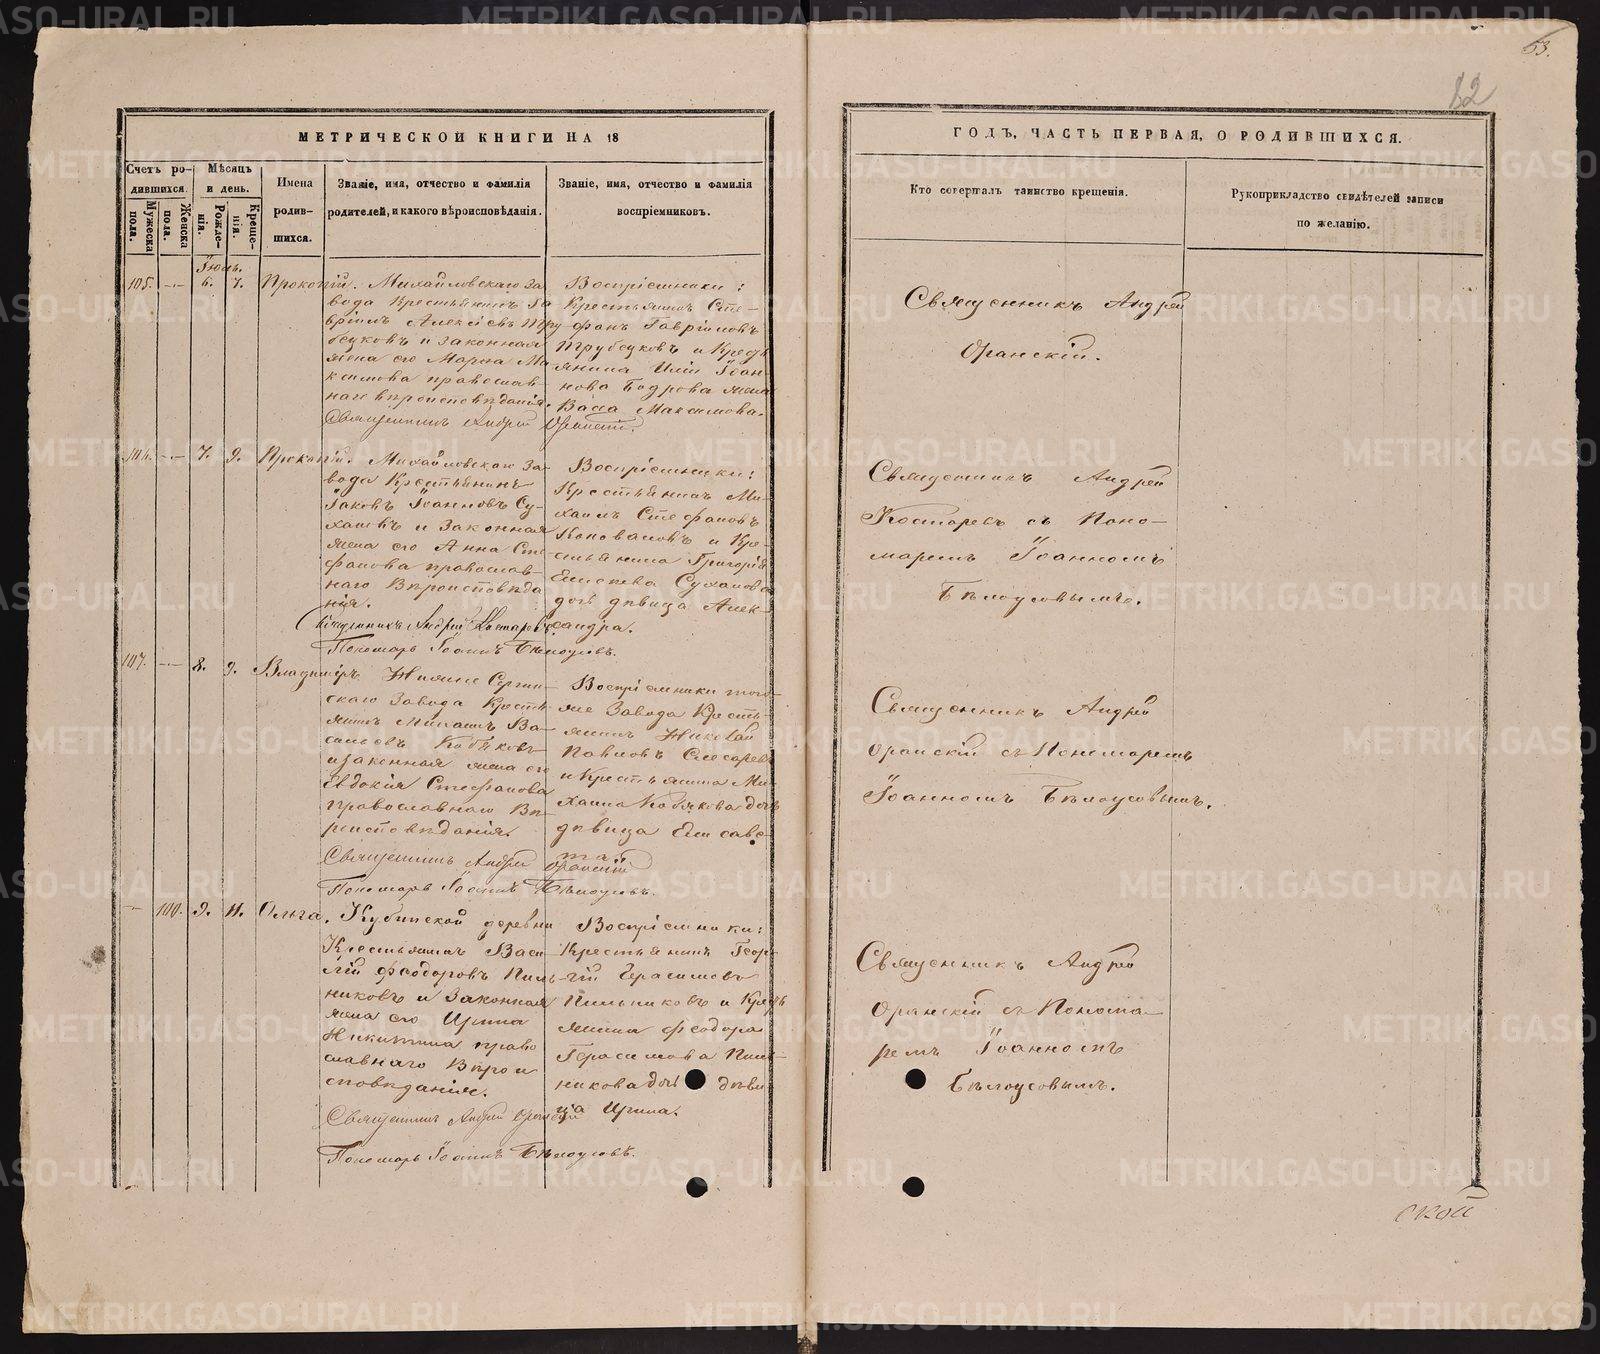 63.
82
МЕТРИЧЕСКОЙ КНИГИ НА 18
ГОДЪ, ЧАСТЬ ПЕРВАЯ, О РОДИВШИХСЯ.
Счетъ ро-
дившихся.
Мужеска
пола.
Женска
пола.
Мѣсяцъ
и день.
Рожде-
нія.
Креще-
нія.
Имена
родив-
шихся.
Званіе, имя, отчество и фамилія
родителей, и какого вѣроисповѣданія.
Званіе, имя, отчество и фамилія
воспріемниковъ.
Кто совершалъ таинство крещенія.
Рукоприкладство свидѣтелей записи
по желанію.
Іюль.
105. 6. 7. Прокопій.
Михайловскаго За-
вода Крестьянинъ Га
вріилъ Алексѣевъ Тру
бсуковъ и законная
жена его Марѳа Ма
ксимова православ-
наго вѣроисповѣданія.
Священникъ Андрей Оранскій.
Воспріемники:
Крестьянинъ Сте-
фанъ Гавріиловъ
Трубсуковъ и Кресть
янина Иліи Іоан-
нова Бодрова жена
Васса Максимова.
Священникъ Андрей
Оранскій.
106. 7. 9. Прокопій.
Михайловскаго За-
вода Крестьянинъ
Іаковъ Іоанновъ Су-
хановъ и Законная
жена его Анна Сте
фанова православ-
наго Вѣроисповѣда
нія.
Священникъ Андрей Костаревъ
Пономарь Іоаннъ Бѣлоусовъ.
Воспріемники:
Крестьянинъ Ми-
хаилъ Стефановъ
Коноваловъ и Кре-
стьянина Григорія
Елисеева Суханова
дочь дѣвица Алек-
сандра.
Священникъ Андрей
Костаревъ съ Поно-
маремъ Іоанномъ
Бѣлоусовымъ.
107. 8. 9. Владиміръ
Нижне Сергин-
скаго Завода Кресть
янинъ Михаилъ Ва-
сильевъ Кобяковъ
и законная жена его
Евдокія Стефанова
православнаго Вѣ-
роисповѣданія.
Священникъ Андрей Оранскій
Пономарь Іоаннъ Бѣлоусовъ.
Воспріемники того-
же Завода Кресть-
янинъ Николай
Павловъ Слесаревъ
и Крестьянина Ми-
хаила Кобякова дочь
дѣвица Елисаве-
та.
Священникъ Андрей
Оранскій съ Пономаремъ
Іоанномъ Бѣлоусовымъ.
100. 9. 11. Ольга.
Кубинской деревни
Крестьянинъ Васи
лій Феодоровъ Пиль-
никовъ и Законная
жена его Ирина
Никитина право
славнаго Вѣрои
сповѣданія.
Священникъ Андрей Оранскій
Пономарь Іоаннъ Бѣлоусовъ.
Воспріемники:
Крестьянинъ Геор-
гій Герасимовъ
Пильниковъ и Кресть
янина Феодора
Герасимова Пиль-
никова дочь дѣви
ца Ирина.
Священникъ Андрей
Оранскій съ Понома-
ремъ Іоанномъ
Бѣлоусовымъ.
METRIKI.GASO-URAL.RU